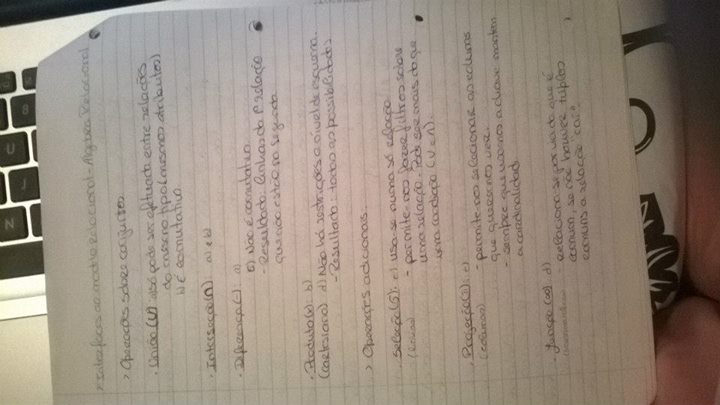 > Interfaces ao modelo relacional - Álgebra Relacional
> Operações sobre conjuntos
. União (U) a) só pode ser efetuado entre relações
do mesmo tipo (mesmos atributos)
b) é comutativo
. Interseção (∩) a) e b)
. Diferença (-): a)
b) Não é comutativo.
- Resultado: linhas da 1ª relação
que não estão na segunda.
. Produto (x): b)
(cartesiano) d) Não há restrições a nível de esquema.
- Resultado: todas as possibilidades
> Operações adicionais.
. Seleção (σ): e) usa-se numa só relação
(linhas) - permite-nos fazer filtros sobre
uma relação. Pode ser mais do que
uma condição (V e Λ).
. Projeção (π): e)
(colunas) - permite-nos selecionar as colunas
que queremos ver.
- sempre que usamos a chave mantem
a cardinalidade
. Junção (∞) d)
relaciona se por via do que é
comum, se não houver tuplos
comuns a relação "cai"
N